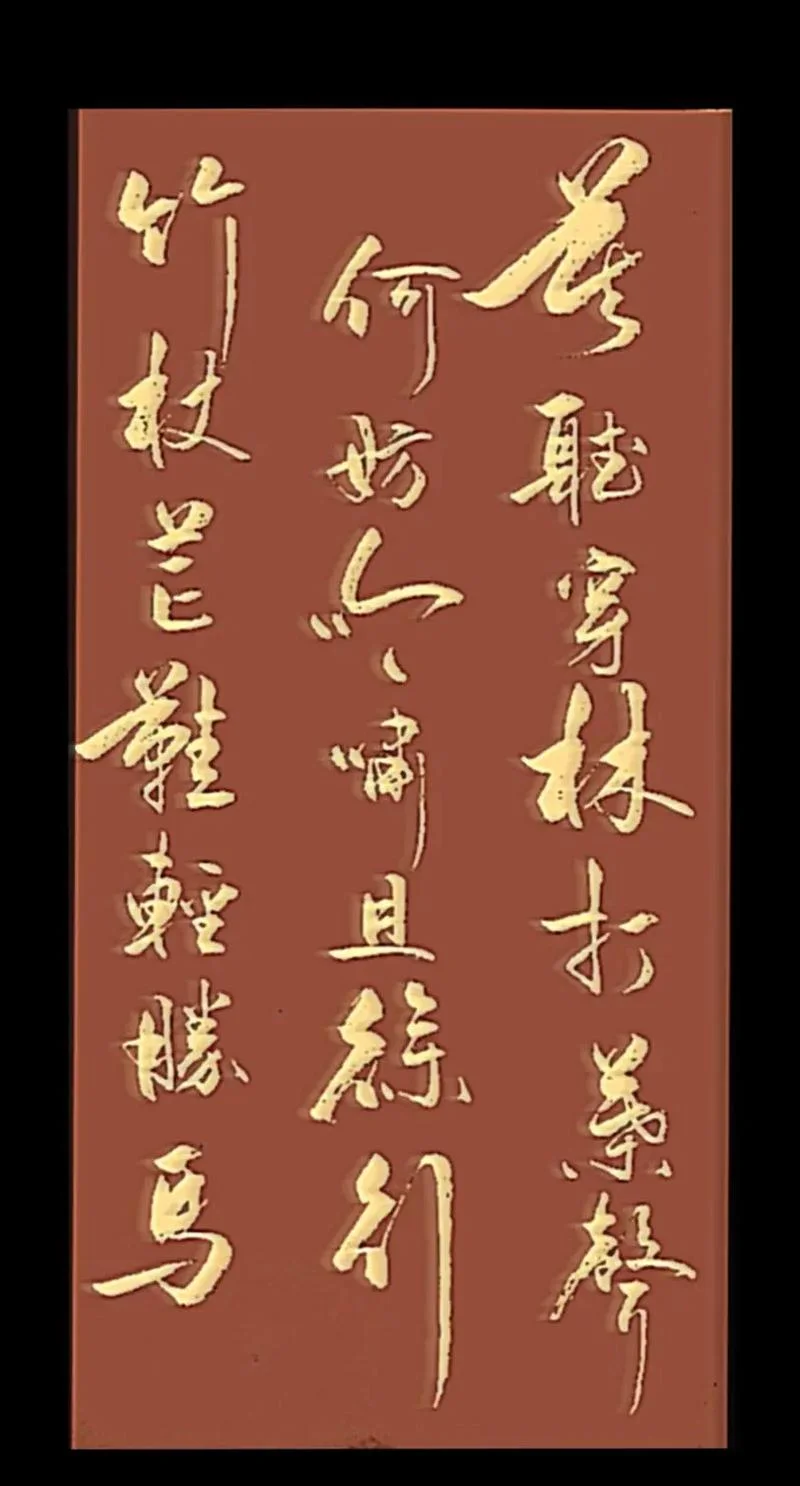 莫聽穿林打葉聲
何妨吟嘯且徐行
竹杖芒鞋輕勝馬